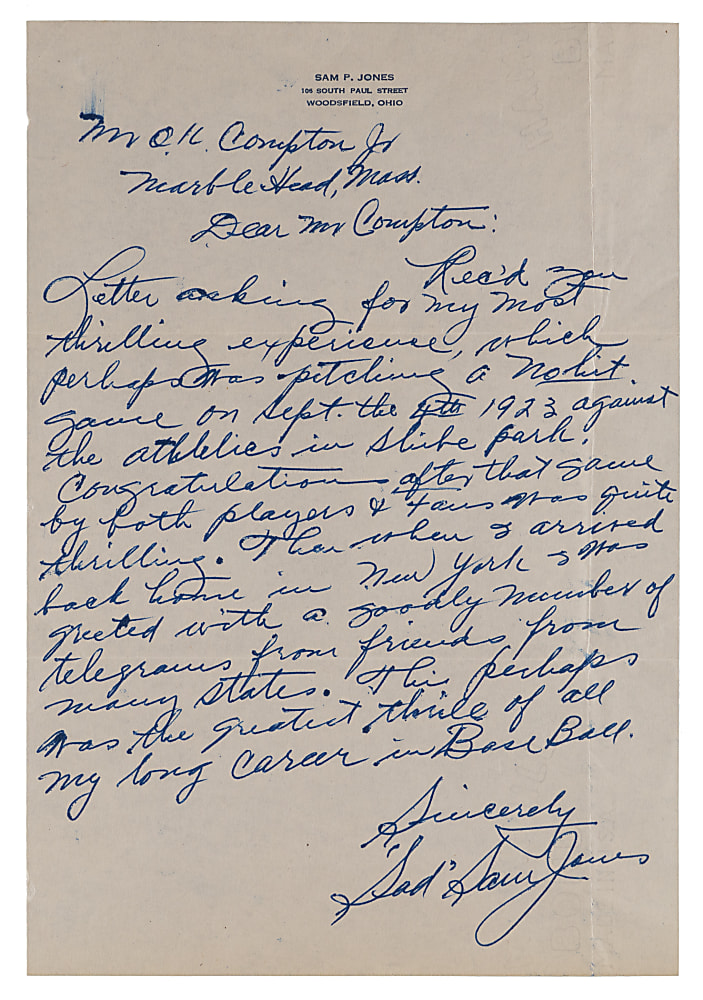 SAM P. JONES
106 SOUTH PAUL STREET
WOODSFIELD, OHIO
Mr O.K. Compton Jr
Marble Head, Mass.
Dear Mr Compton:
Rec'd you
Letter asking for my most
thrilling experience, which
perhaps was pitching a No hit
game on Sept. the 4th 1923 against
the athletics in Shibe park.
Congratulations after that game
by both players & fans was quite
thrilling. Then when I arrived
back home in New York I was
greeted with a goodly number of
telegrams from friends from
many states. This perhaps
was the greatest thrill of all
my long career in Base Ball.
Sincerely
"Sad" Sam Jones